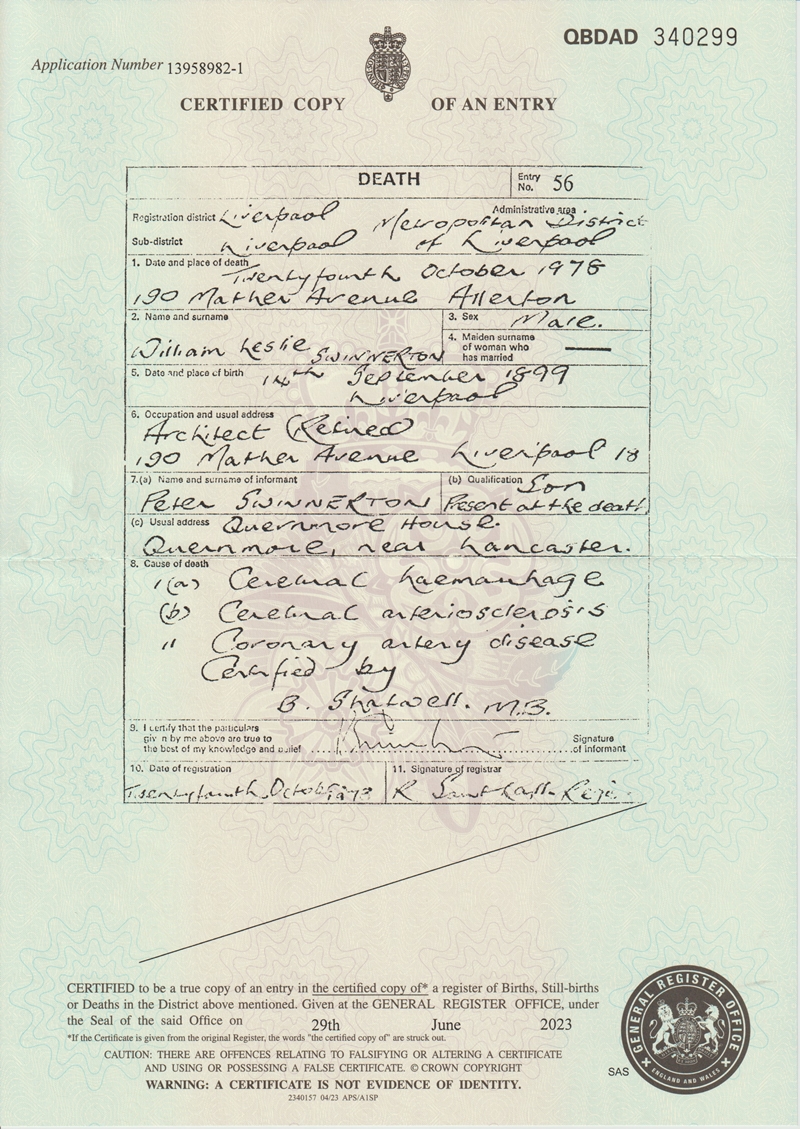 QBDAD 340299
Application Number 13958982-1
CERTIFIED COPY OF AN ENTRY
DEATH
Entry No. 56
Registration district Liverpool
Administrative area
Metropolitan District
Sub-district Liverpool
of Liverpool
1. Date and place of death
Twentyfourth October 1978
190 Mather Avenue Allerton
2. Name and surname
William Leslie SWINNERTON
3. Sex Male.
4. Maiden surname
of woman who
has married
5. Date and place of birth 14th September 1899
Liverpool
6. Occupation and usual address
Architect (Retired)
190 Mather Avenue Liverpool 18
7.(a) Name and surname of informant
Peter SWINNERTON
(b) Qualification Son
Present at the death
(c) Usual address Quernmore House.
Quernmore, near Lancaster.
8. Cause of death
1(a) Cerebral haemorrhage
(b) Cerebral arteriosclerosis
11 Coronary artery disease
Certified by
B. Shatwell. M.B.
9. I certify that the particulars
given by me above are true to
the best of my knowledge and belief
Signature
of informant
10. Date of registration
Twentyfourth October 1978
11. Signature of registrar
R
CERTIFIED to be a true copy of an entry in the certified copy of* a register of Births, Still-births
or Deaths in the District above mentioned. Given at the GENERAL REGISTER OFFICE, under
the Seal of the said Office on 29th June 2023
*If the Certificate is given from the original Register, the words "the certified copy of" are struck out.
CAUTION: THERE ARE OFFENCES RELATING TO FALSIFYING OR ALTERING A CERTIFICATE
AND USING OR POSSESSING A FALSE CERTIFICATE. © CROWN COPYRIGHT
WARNING: A CERTIFICATE IS NOT EVIDENCE OF IDENTITY.
2340157 04/23 APS/A1SP
SAS
GENERAL REGISTER OFFICE
ENGLAND AND WALES